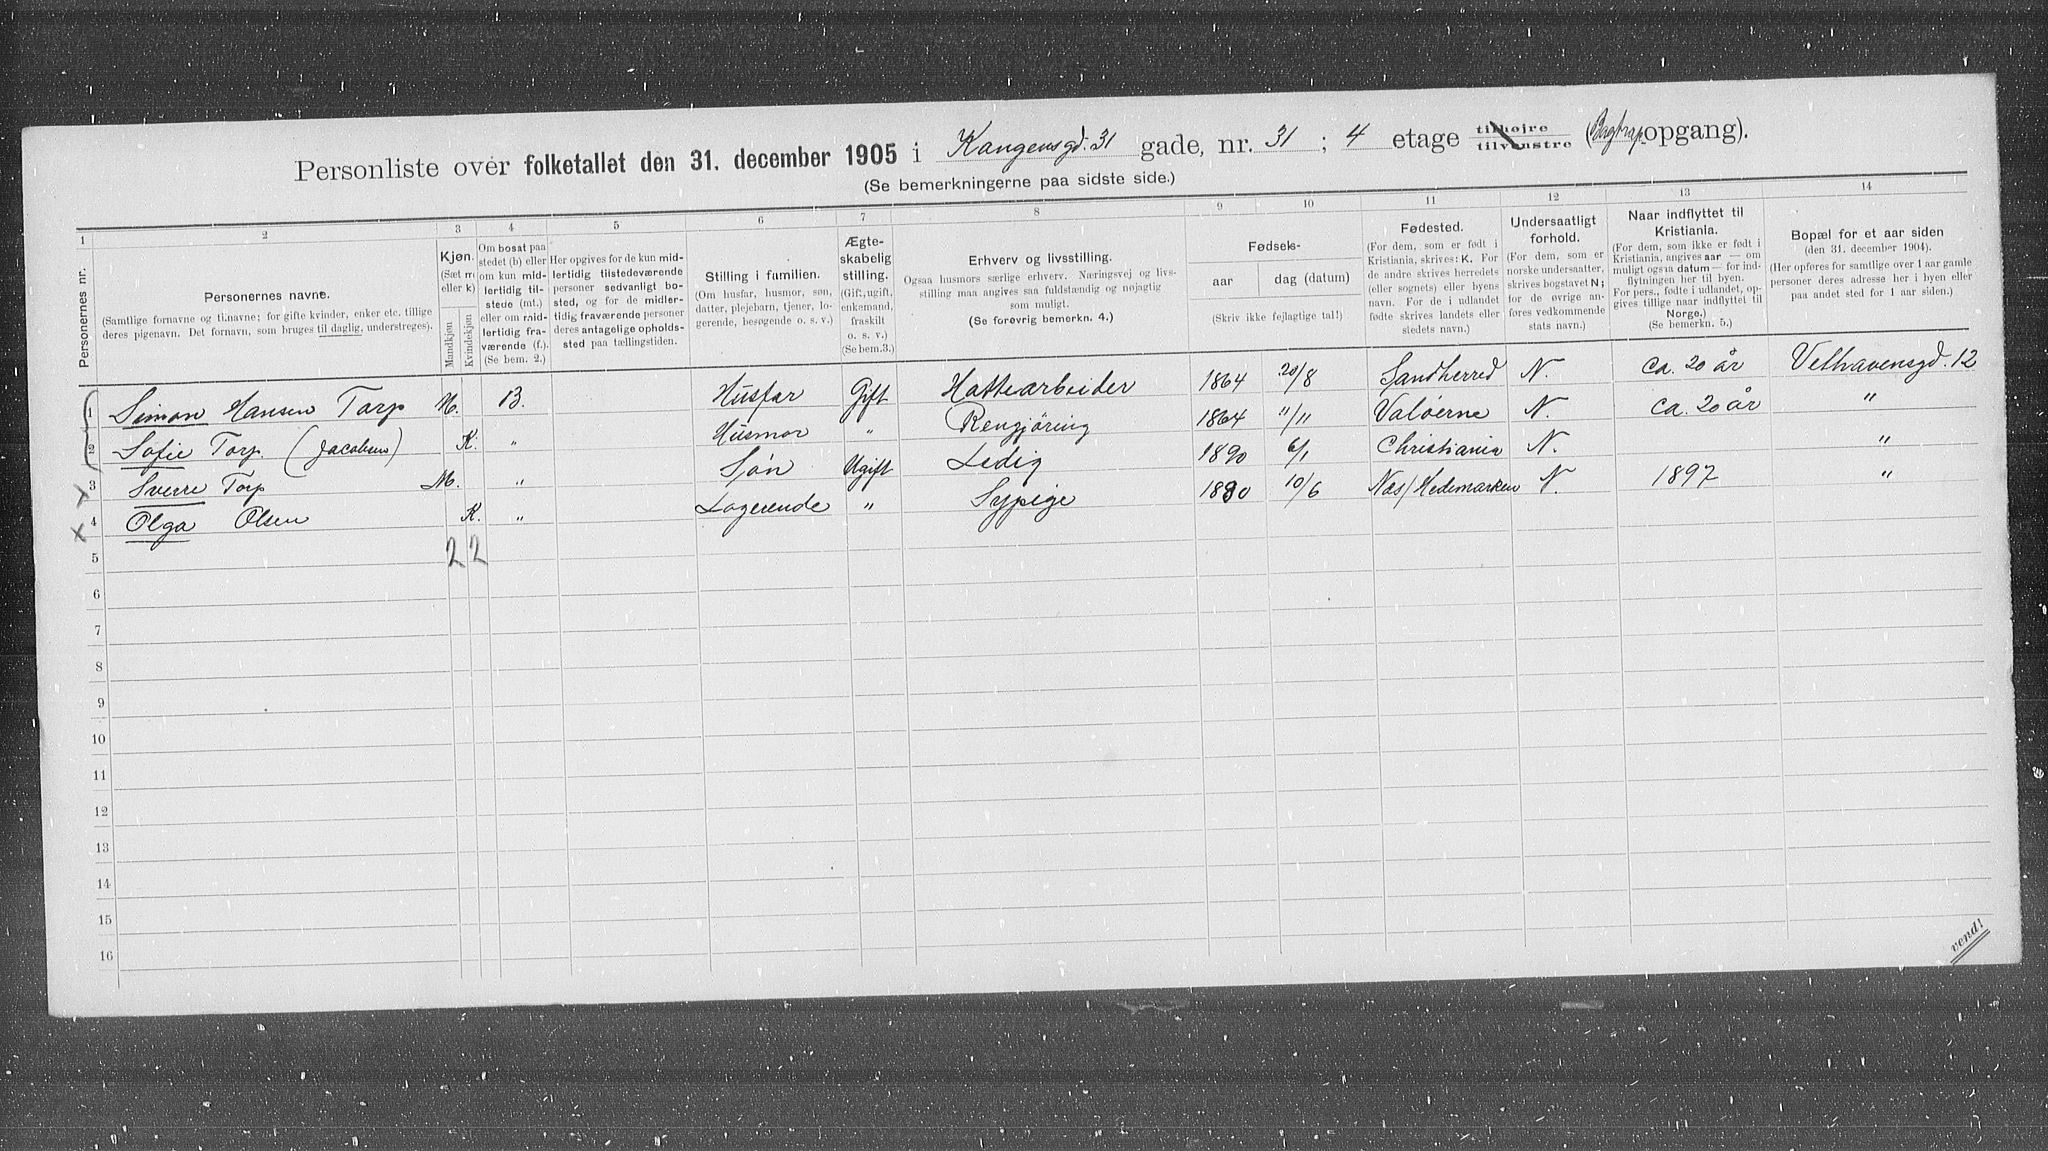 Personliste over folketallet den 31. december 1905 i Kongensgd. 31 gade, nr. 31 ; 4 etage tilhøjre tilvenstre (Bagtrap opgang).
(Se bemerkningerne paa sidste side.)
1 2 3 4 5 6 7 8 9 10 11 12 13 14
Personernes nr.
Personernes navne.
(Samtlige fornavne og tilnavne; for gifte kvinder, enker etc. tillige deres pigenavn. Det fornavn, som bruges til daglig, understreges).
Kjøn.
(Sæt m eller k)
Mandkjøn
Kvindekjøn
Om bosat paa stedet (b) eller om kun midlertidig tilstede (mt.) eller om midlertidig fraværende (f.) (Se bem. 2.)
Her opgives for de kun midlertidig tilstedeværende personer sedvanligt bosted, og for de midlertidig fraværende personer deres antagelige opholdssted paa tællingstiden.
Stilling i familien.
(Om husfar, husmor, søn, datter, plejebarn, tjener, logerende, besøgende o. s. v.)
Ægteskabelig stilling.
(Gift, ugift, enkemand, fraskilt o. s. v.)
(Se bem.3.)
Erhverv og livsstilling.
Ogsaa husmors særlige erhverv. Næringsvej og livsstilling maa angives saa fuldstændig og nøjagtig som muligt.
(Se forøvrig bemerkn. 4.)
Fødsels-
aar
dag (datum)
(Skriv ikke fejlagtige tal!)
Fødested.
(For dem, som er født i Kristiania, skrives: K. For de andre skrives herredets (eller sognets) eller byens navn. For de i udlandet fødte skrives landets eller stedets navn.)
Undersaatligt forhold.
(For dem, som er norske undersaatter, skrives bogstavet N; for de øvrige anføres vedkommende stats navn.)
Naar indflyttet til Kristiania.
(For dem, som ikke er født i Kristiania, angives aar — om muligt ogsaa datum — for indflytningen her til byen. For pers., fødte i udlandet, opgives tillige naar indflyttet til Norge.)
(Se bemerkn. 5.)
Bopæl for et aar siden
(den 31. december 1904).
(Her opføres for samtlige over 1 aar gamle personer deres adresse her i byen eller paa andet sted for 1 aar siden.)
1 Simon Hansen Torp M. B. Husfar Gift Hattearbeider 1864 20/8 Sandherred N. ca. 20 år Velhavensgd. 12
2 Sofie Torp. (Jacobsen) K. " Husmor " Rengjøring 1864 11/11 Valøerne N. ca. 20 år "
3 Sverre Torp M. " Søn Ugift Ledig 1890 6/1 Christiania N. "
4 Olga Olsen K. " Logerende " Sypige 1880 10/6 Næs/Hedemarken N. 1897 "
2 2
5
6
7
8
9
10
11
12
13
14
15
16
vend!